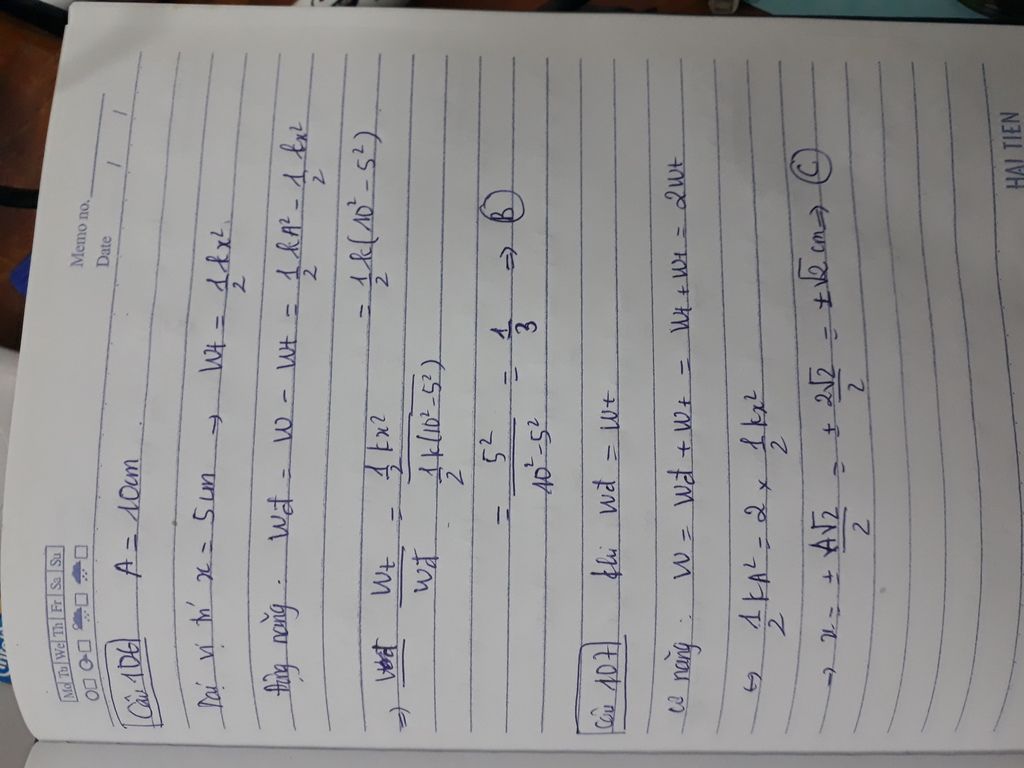 Memo no.
Mo Tu We Th Fr Sa Su
Date / /
Câu 106 A = 10cm
Tại vị trí x = 5cm → Wt = 1/2 kx²
Động năng: Wđ = W - Wt = 1/2 kA² - 1/2 kx²
= 1/2 k(10² - 5²)
⇒ Wt/Wđ = (1/2 kx²)/(1/2 k(10² - 5²))
= 5²/(10² - 5²) = 1/3 ⇒ B
Câu 107 khi Wđ = Wt
Cơ năng: W = Wđ + Wt = Wt + Wt = 2Wt
↪ 1/2 kA² = 2 × 1/2 kx²
→ x = ± A√2/2 = ± 2√2/2 = ±√2 cm ⇒ C
HAI TIEN